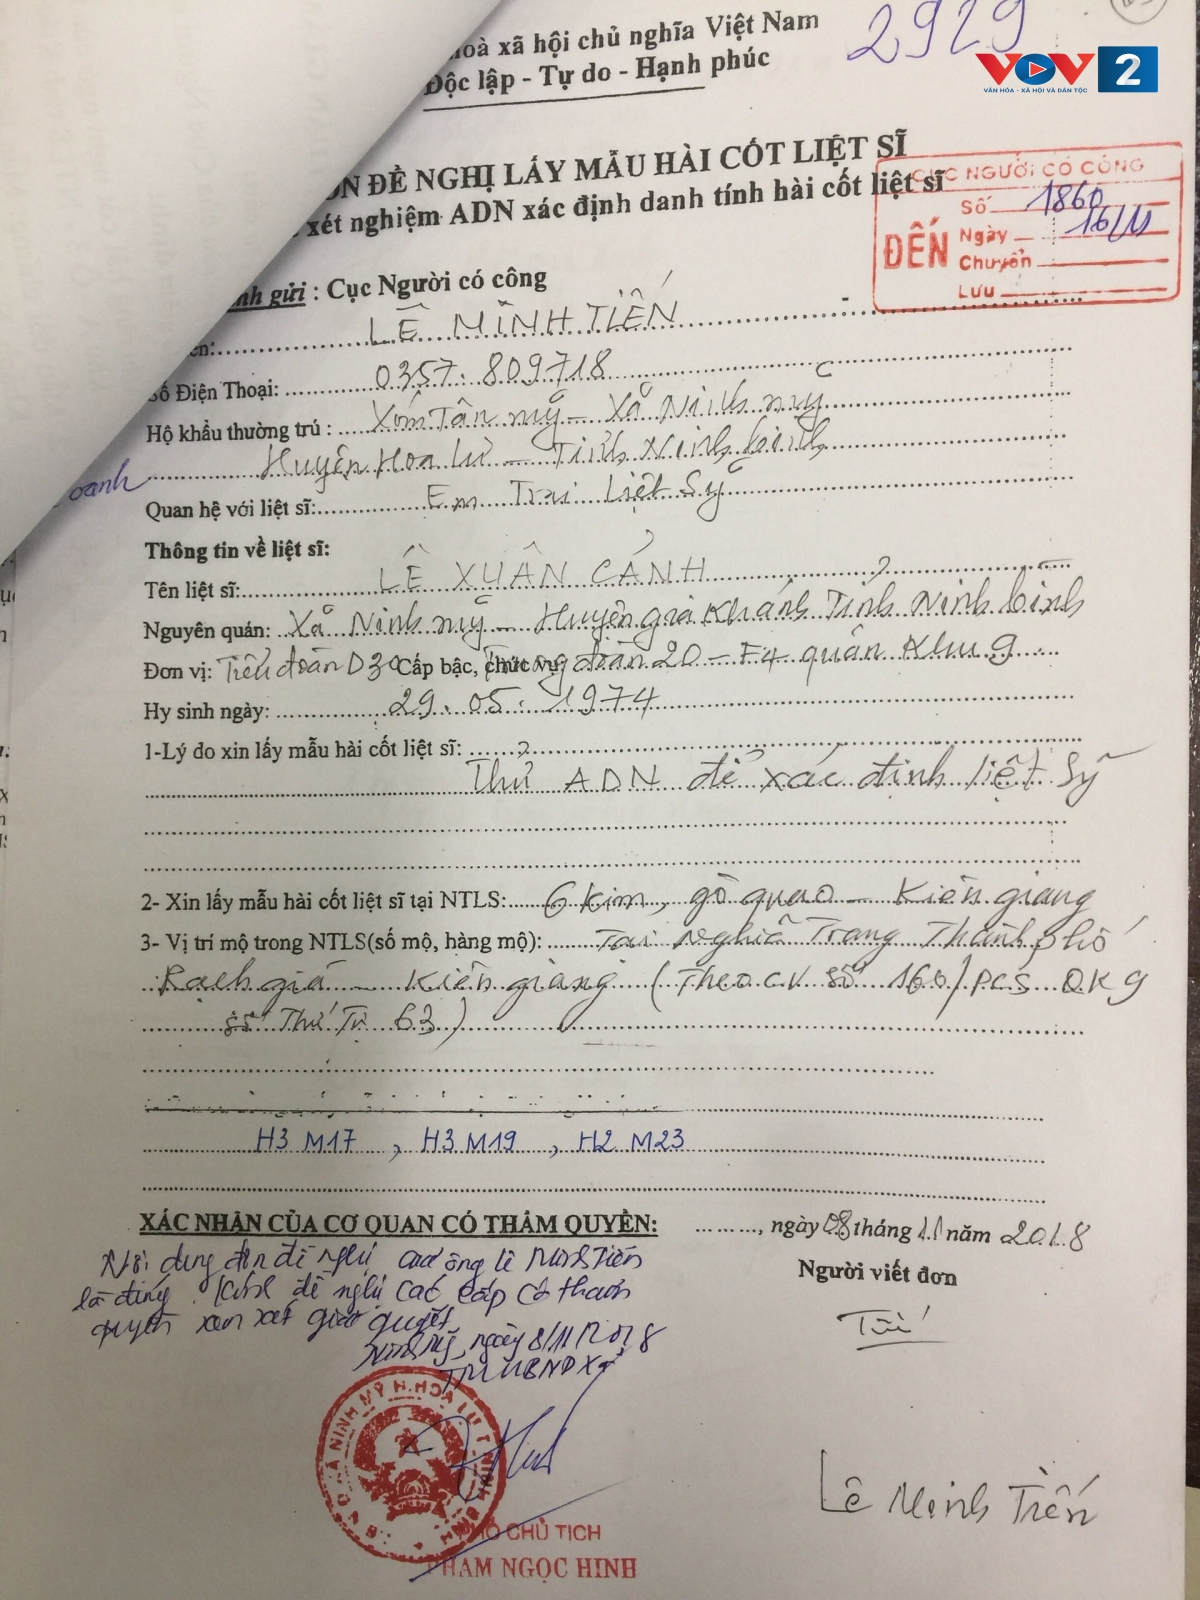 2929
hoà xã hội chủ nghĩa Việt Nam
Độc lập - Tự do - Hạnh phúc
VOV 2
VĂN HÓA - XÃ HỘI VÀ DÂN TỘC
ĐỀ NGHỊ LẤY MẪU HÀI CỐT LIỆT SĨ
xét nghiệm ADN xác định danh tính hài cốt liệt sĩ
CỤC NGƯỜI CÓ CÔNG
Số 1860
ĐẾN Ngày 16/11
Chuyển
Lưu
gửi : Cục Người có công
LÊ MINH TIẾN
Số Điện Thoại: 0357.809718
Hộ khẩu thường trú : Xóm Tân mỹ - Xã Ninh mỹ
Huyện Hoa lư - Tỉnh Ninh bình
oanh
Quan hệ với liệt sĩ: Em Trai Liệt Sỹ
Thông tin về liệt sĩ:
Tên liệt sĩ: LÊ XUÂN CẢNH
Nguyên quán: Xã Ninh mỹ - Huyện gia Khánh Tỉnh Ninh bình
Đơn vị: Tiểu đoàn D30 Cấp bậc, chức vụ: Trung đoàn 20 - F4 quân Khu 9
Hy sinh ngày: 29.05.1974
1-Lý do xin lấy mẫu hài cốt liệt sĩ:
Thử ADN để xác định liệt sỹ
2- Xin lấy mẫu hài cốt liệt sĩ tại NTLS: 6 Kim, gò quao - Kiên giang
3- Vị trí mộ trong NTLS(số mộ, hàng mộ): Tại Nghĩa Trang Thành phố
Rạch giá - Kiên giang (Theo CV số 160/PCS QK9
số Thứ Tự 63)
H3 M17 , H3 M19 , H2 M23
XÁC NHẬN CỦA CƠ QUAN CÓ THẨM QUYỀN:
......, ngày 08 tháng 11 năm 2018
Người viết đơn
Nội dung đơn đề nghị của ông lê Minh Tiến
là đúng. Kính đề nghị các cấp có thẩm
quyền xem xét giải quyết
Ninh Mỹ, ngày 8/11/2018
TM UBND xã
Lê Minh Tiến
U.B.N.D XÃ NINH MỸ H.HOA LƯ T.NINH BÌNH
PHÓ CHỦ TỊCH
PHẠM NGỌC HINH